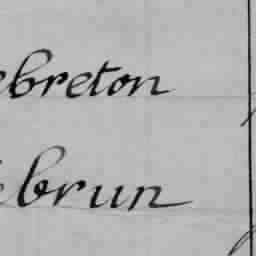 ebreton
ebrun